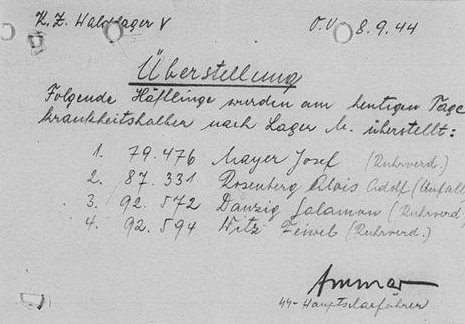 K.Z. Waldlager V
O.U. 8.9.44
Überstellung
Folgende Häftlinge wurden am heutigen Tage
krankheitshalber nach Lager M. überstellt:
1. 79.476 Mayer Josef (Ruhrverd.)
2. 87.331 Rosenberg Alois Adolf (Anfall
3. 92.572 Danzig Salamon (Ruhrverd
4. 92.594 Witz Feiweb (Ruhrverd.)
SS-Hauptscharführer